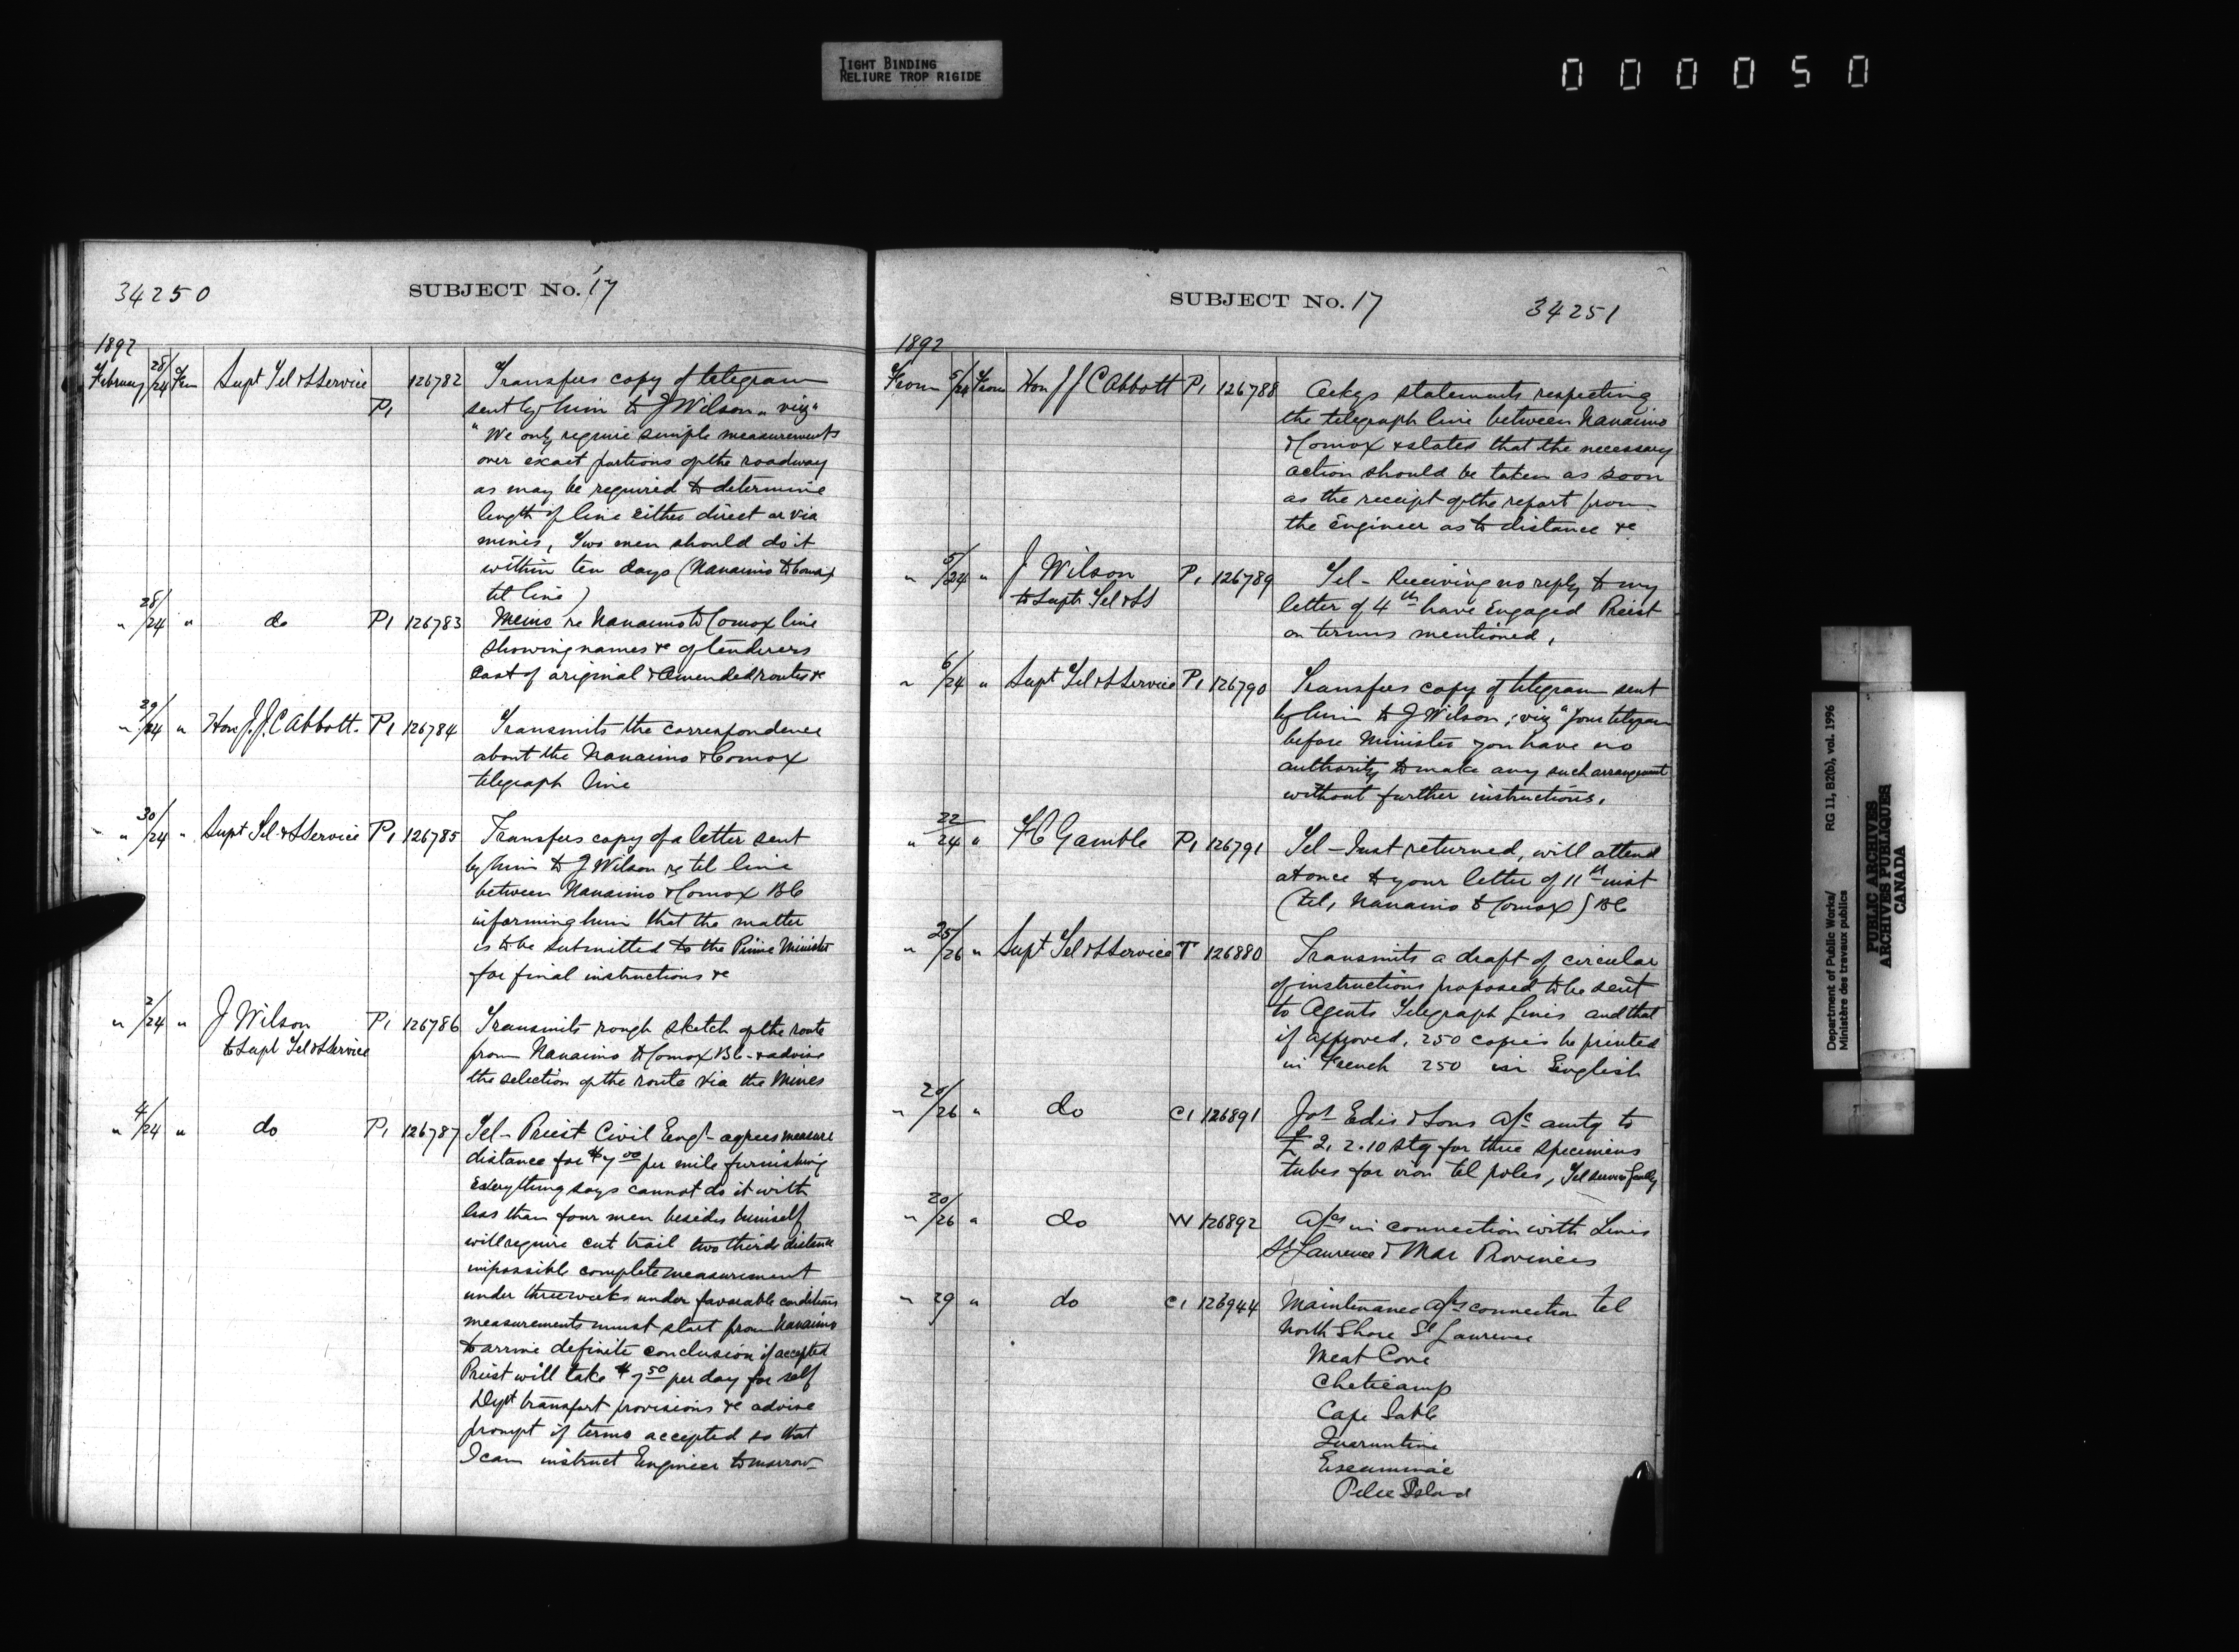 TIGHT BINDING
RELIURE TROP RIGIDE
000050
34250
SUBJECT No. 17
1892
February 28/24 From Supt Tel & S Service P1 126782 Transfers copy of telegram
sent by him to J Wilson " viz "
"We only require simple measurements
over exact portions of the roadway
as may be required to determine
length of line either direct or via
mines, Two men should do it
within ten days (Nanaimo to Comox
tel line)
" 28/24 " do P1 126783 Memo re Nanaimo to Comox line
showing names &c of tenderers
Cost of original & Amended routes &c
" 29/24 " Hon J.J.C Abbott. P1 126784 Transmits the correspondence
about the Nanaimo & Comox
telegraph line
" 30/24 " Supt Tel & S Service P1 126785 Transfers copy of a letter sent
by him to J Wilson re tel line
between Nanaimo & Comox BC
informing him that the matter
is to be submitted to the Prime Minister
for final instructions &c
" 2/24 " J Wilson P1 126786 Transmits rough sketch of the route
to Supt Tel & S Service from Nanaimo to Comox BC - & advise
the selection of the route via the Mines
" 4/24 " do P1 126787 Tel - Priest Civil Engr - agrees measure
distance for $7 00 per mile furnishing
Everything says cannot do it with
less than four men besides himself
will require cut trail two thirds distance
impossible complete measurement
under three weeks under favorable conditions
measurements must start from Nanaimo
to arrive definite conclusion if accepted
Priest will take $7 50 per day for self
Dept transport provisions &c advise
prompt if terms accepted so that
I can instruct Engineer tomorrow
SUBJECT No. 17
34251
1892
From 5/24 From Hon J J C Abbott P1 126788 Ackgs statements respecting
the telegraph line between Nanaimo
& Comox & states that the necessary
action should be taken as soon
as the receipt of the report from
the Engineer as to distance &c
" 5/24 " J Wilson P1 126789 Tel - Receiving no reply to my
to Supt Tel & SS letter of 4th have Engaged Priest
on terms mentioned,
" 6/24 " Supt Tel & S Service P1 126790 Transfers copy of telegram sent
by him to J Wilson; viz "Your telegram
before Minister you have no
authority to make any such arrangement
without further instructions.
" 22/24 " FC Gamble P1 126791 Tel - Just returned, will attend
at once to your letter of 11th inst
(tel, Nanaimo & Comox) BC
" 25/26 " Supt Tel & S Service T 126880 Transmits a draft of circular
of instructions proposed to be sent
to Agents Telegraph Lines and that
if approved, 250 copies be printed
in French 250 in English
" 20/26 " do C1 126891 Jos Edis & Sons a/c amtg to
£ 2, 2.10 stg for three specimens
tubes for iron tel poles, Tel service
" 20/26 " do W 126892 a/cs in connection with Lines
St Laurence & Mar Provinces
" 29 " do C1 126944 Maintenance a/cs connection tel
North Shore St Laurence
Meat Cove
Cheticamp
Cape Sable
Quarantine
Escuminac
Pelee Island
Department of Public Works/
Ministère des travaux publics
RG 11, B2(b), vol. 1996
PUBLIC ARCHIVES
ARCHIVES PUBLIQUES
CANADA